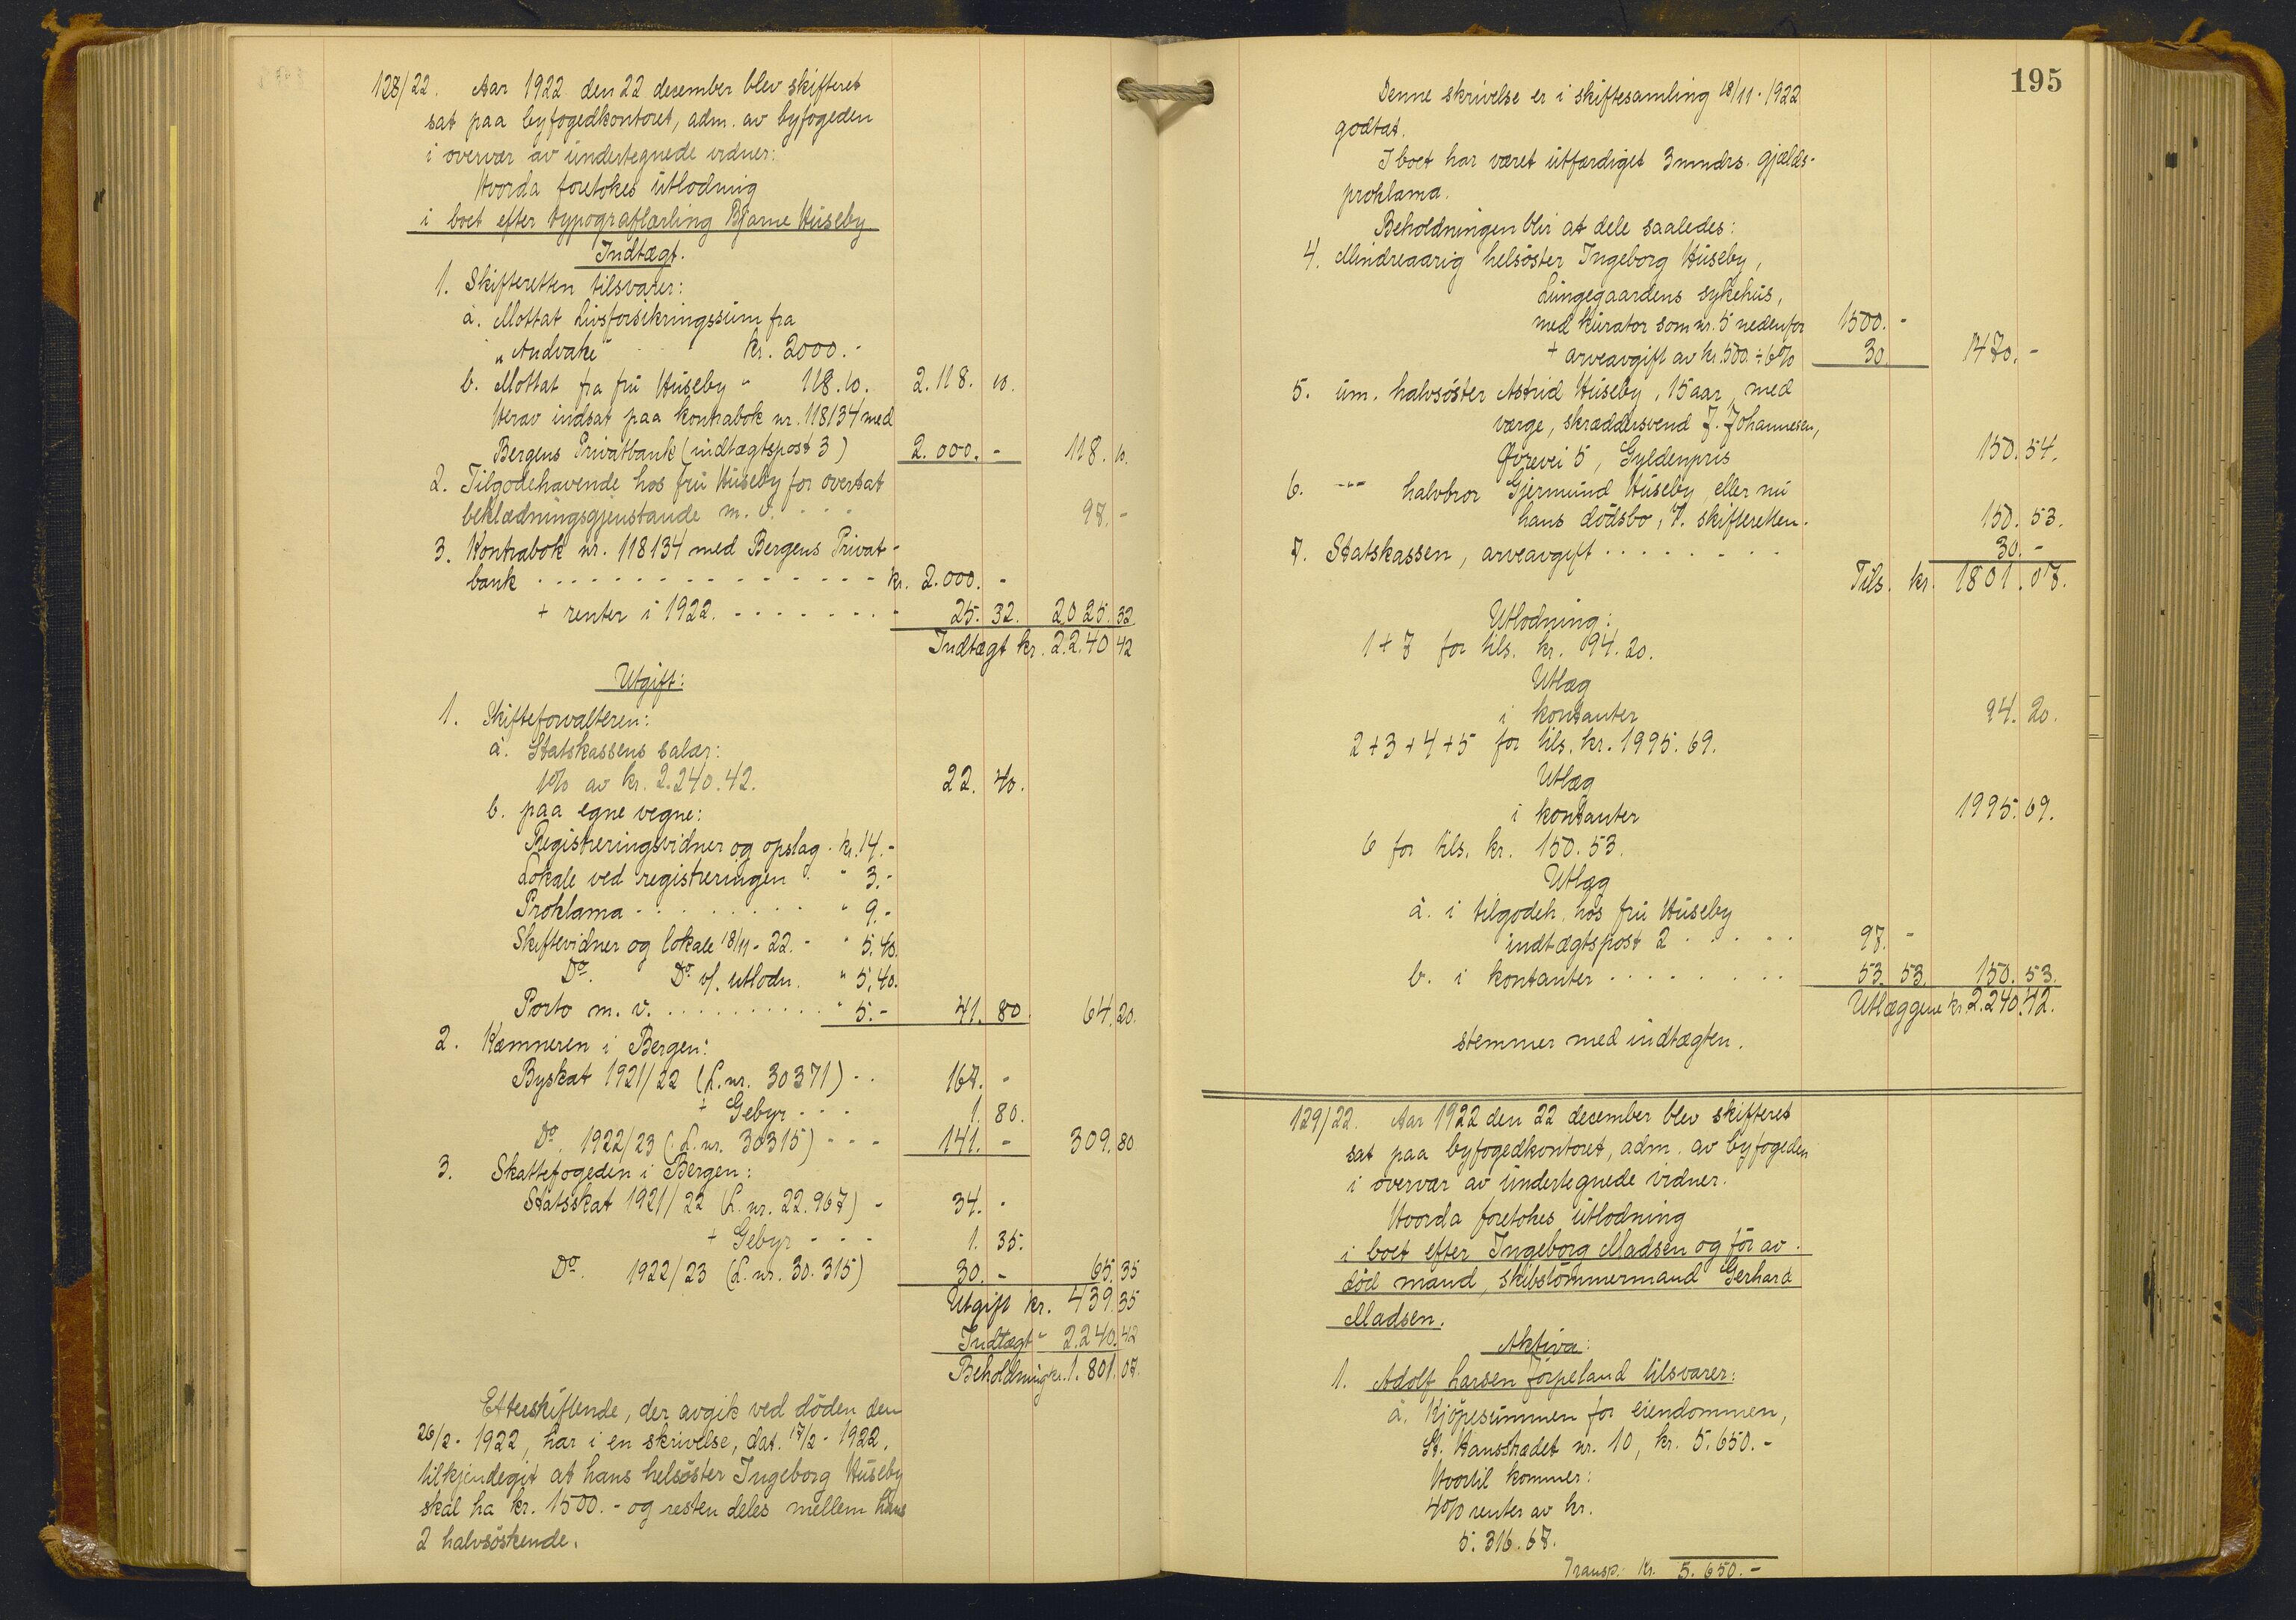 128/22. Aar 1922 den 22 december blev skifteret
sat paa byfogedkontoret, adm. av byfogeden
i overvær av undertegnede vidner:
Hvorda foretokes utlodning
i boet efter typograflærling Bjarne Huseby
Indtægt.
1. Skifteretten tilsvarer:
a. Mottat Livsforsikringssum fra
"Andvake" kr. 2000.-
b. Mottat fra fru Huseby " 118.10. 2.118. 10.
Herav indsat paa kontrabok nr. 118134 med
Bergens Privatbank (indtægtspost 3) 2.000. - 118. 10.
2. Tilgodehavende hos fru Huseby for overtat
beklædningsgjenstande m. v. . . . 97. -
3. Kontrabok nr. 118134 med Bergens Privat-
bank - - - - - - - - - - kr. 2.000. -
+ renter i 1922. - - - - - - - 25. 32. 2025. 32
Indtægt kr. 2.240 42
Utgift:
1. Skifteforvalteren:
a. Statskassens salær:
1% av kr. 2.240.42. 22. 40.
b. paa egne vegne:
Registreringsvidner og opslag. kr. 14.-
Lokale ved registreringen " 3.-
Proklama - - - - - - " 9.-
Skiftevidner og lokale 18/11 - 22. - " 5.40.
Do. Do v/. utlodn. " 5.40.
Porto m. v. . . . . . . . . . " 5.- 41. 80. 64. 20.
2. Kæmneren i Bergen:
Byskat 1921/22 (L. nr. 30371) - . 167. -
+ Gebyr - - - 1. 80.
Do. 1922/23 (L. nr. 30315) - - - 141. - 309. 80
3. Skattefogeden i Bergen:
Statsskat 1921/22 (L. nr. 22.967) - 34. -
+ Gebyr - - - 1. 35.
Do. 1922/23 (L. nr. 30.315) 30. - 65. 35
Utgift kr. 439. 35
Indtægt " 2.240. 42
Beholdning kr. 1.801. 07.
Efterskiftende, der avgik ved döden den
26/2 - 1922, har i en skrivelse, dat. 17/2 - 1922,
tilkjendegit at hans helsöster Ingeborg Huseby
skal ha kr. 1500. - og resten deles mellem hans
2 halvsöskende.
195
Denne skrivelse er i skiftesamling 18/11 - 1922
godtat.
I boet har været utfærdiget 3 mndrs. gjælds-
proklama.
Beholdningen blir at dele saaledes:
4. Mindreaarig helsöster Ingeborg Huseby,
Lungegaardens sykehus,
med kurator som nr. 5 nedenfor 1500. -
+ arveavgift av kr. 500. ÷ 6% 30. 1470. -
5. um. halvsöster Astrid Huseby, 15 aar, med
værge, skræddersvend J. Johannesen,
Övrevei 5, Gyldenpris 150. 54.
6. -"- halvbror Gjermund Huseby, eller nu
hans dödsbo, v. skifteretten. 150. 53.
7. Statskassen, arveavgift . . . . . . . . 30. -
Tils. kr. 1801. 07.
Utlodning:
1 + 7 for tils. kr. 94.20.
Utlæg
i kontanter 94. 20.
2 + 3 + 4 + 5 for tils. kr. 1995.69.
Utlæg
i kontanter 1995. 69.
6 for tils. kr. 150.53.
Utlæg
a. i tilgodeh. hos fru Huseby
indtægtspost 2 . . . . . 97. -
b. i kontanter . . . . . . . . 53. 53. 150. 53.
Utlæggene kr. 2.240. 42.
stemmer med indtægten.
129/22. Aar 1922 den 22 december blev skifteret
sat paa byfogedkontoret, adm. av byfogeden
i overvær av undertegnede vidner.
Hvorda foretokes utlodning
i boet efter Ingeborg Madsen og för av-
död mand, skibstömmermand Gerhard
Madsen.
Aktiva:
1. Adolf Larsen Förpeland tilsvarer:
a. Kjöpesummen for eiendommen,
St. Hansstrædet nr. 10, kr. 5.650. -
Hvortil kommer:
4% renter av kr.
5.316.67.
Transp. Kr. 5.650. -